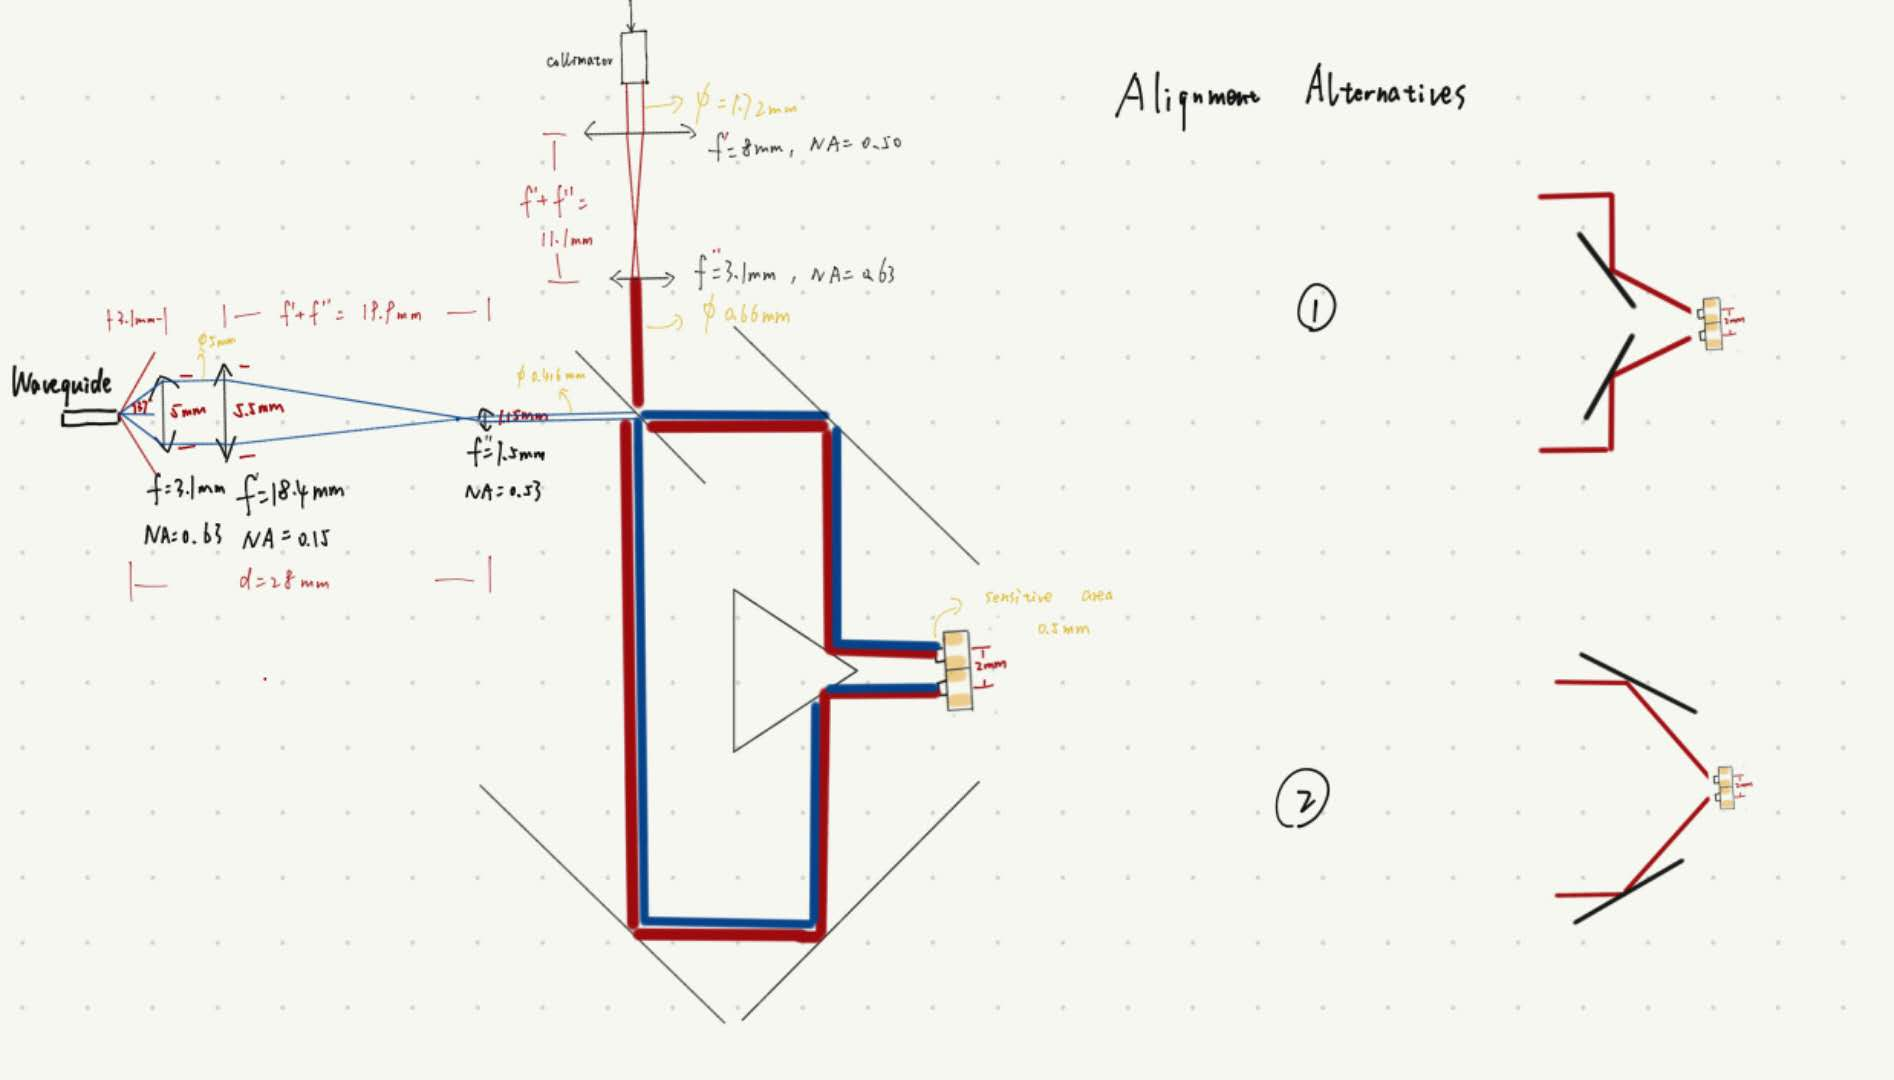 collimator
ϕ = 1.72mm
f'=8mm, NA=0.50
f'+f''=
11.1mm
f''=3.1mm, NA=0.63
ϕ 0.66mm
3.1mm
f'+f''= 19.9mm
ϕ5mm
ϕ 0.416mm
Waveguide
37°
5mm
5.5mm
1.15mm
f''=1.5mm
NA=0.53
f=3.1mm
f'=18.4mm
NA=0.63
NA=0.15
d=28mm
sensitive area
0.5mm
2mm
Alignment Alternatives
①
2mm
②
2mm